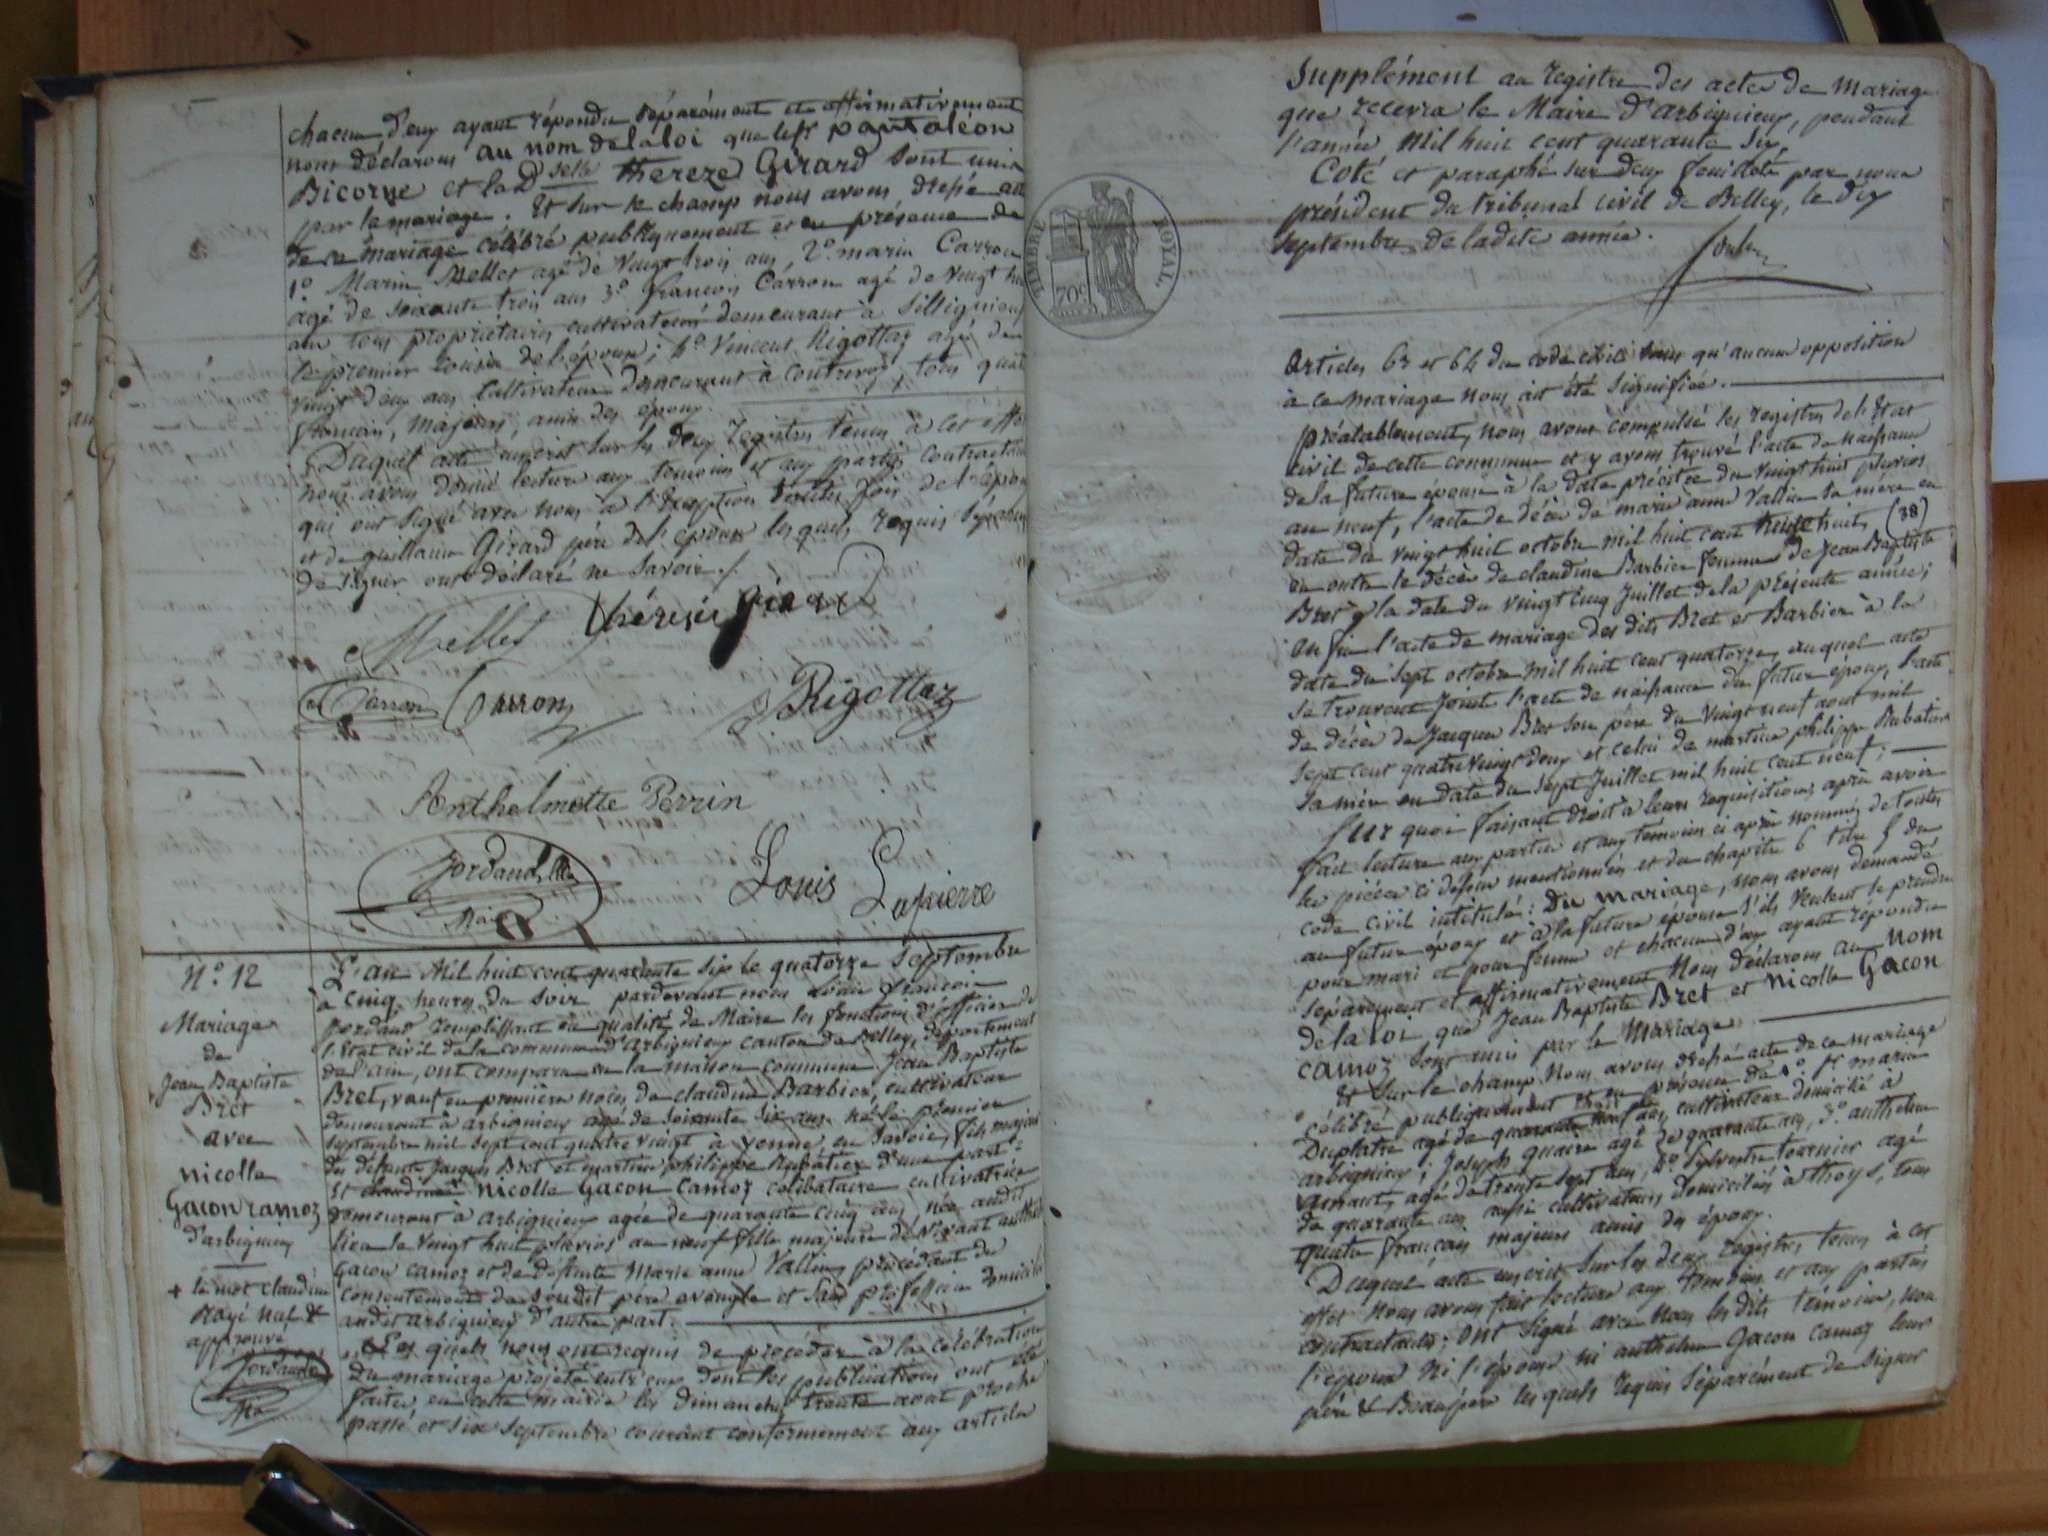 chacun d'eux ayant répondu séparément et affirmativement
nous déclarons au nom de la loi que le Sr pantaléon
Bicorne et la Dselle thereze Girard sont unis
par le mariage. Et sur le champ nous avons dressé acte
de ce mariage célébré publiquement et en présence de
1o Marin Mellet agé de vingt trois ans, 2o marin Carron
agé de soixante trois ans 3o francois Carron agé de vingt huit
ans tous propriétaires cultivateurs demeurant à Silligneux
le premier cousin de l'épouse; 4o Vincent Rigottaz agé de
vingt deux ans cultivateur demeurant à contrevoz, tous quatre
francais, majeurs, amis des époux.
Duquel acte inscrit sur les deux registres tenus à cet effet
nous avons donné lecture aux temoins et aux parties contractantes
qui ont signé avec nous à l'exception toutes fois de l'époux
et de guillaume Girard père de l'epouse les quels requis séparément
de signer ont déclaré ne savoir./.
Mellet thérèse girard
Carron Carron Rigottaz
Anthelmette Perrin
Jordand
Louis Lapierre
No 12
Mariage
de
Jean Baptiste
Bret
avec
nicolle
Gacon camoz
d'arbignieu
+ le mot claudine
Rayé nul &
approuvé
Jordand
L'an Mil huit cent quarante six le quatorze Septembre
à cinq heures du soir pardevant nous francois
Jordand remplissant en qualité de Maire les fonctions d'officier de
l'Etat civil de la commune d'Arbignieux canton de Belley, département
de l'ain, ont comparu en la maison commune Jean Baptiste
Bret, veuf en premières noces de claudine Barbier, cultivateur
demeurant à arbignieux agé de soixante six ans né le premier
septembre mil sept cent quatre vingt à yenne en Savoie, fils majeur
des défunts Jacques Bret et martine philippe Rubatier d'une part=
Et claudine nicolle Gacon Camoz célibataire cultivatrice
demeurant à arbignieux agée de quarante cinq ans née audit
lieu le vingt huit pluviose an neuf fille majeure de vivant anthelme
Gacon camoz et de défunte Marie anne Vallin, procédant du
consentement de son dit père aveugle et sans profession domicilié
audit arbignieux d'autre part.
Les quels nous ont requis de procéder à la célébration
du mariage projeté entr'eux dont les publications ont été
faites, en cette mairie les dimanches trente aout proche
passé et six septembre courant conformément aux articles
TIMBRE ROYAL.
70c
Supplément au registre des actes de Mariage
que recevra le Maire d'arbignieux, pendant
l'année Mil huit cent quarante six,
Coté et paraphé sur deux feuillets par nous
président du tribunal civil de Belley, le dix
septembre de ladite année.
Articles 63 et 64 du code civil sans qu'aucune opposition
à ce mariage nous ait été signifiée.
préalablement, nous avons compulsé les registres de l'Etat
civil de cette commune et y avons trouvé l'acte de naissance
de la future épouse à la date précitée du vingt huit pluviose
an neuf, l'acte de décès de marie anne Vallin sa mère en
date du vingt huit octobre mil huit cent trente huit, (38)
en outre le décès de claudine Barbier femme de Jean Baptiste
Bret à la date du vingt cinq Juillet de la présente année;
enfin l'acte de mariage des dits Bret et Barbier à la
date du sept octobre mil huit cent quatorze, auquel acte
se trouvent Joint l'acte de naissance du futur époux, l'acte
de décès de Jacques Bret son père du vingt neuf aout mil
sept cent quatre vingt douze et celui de martine philippe Rubatier
sa mère en date du sept Juillet mil huit cent neuf;
Sur quoi faisant droit à leurs requisitions après avoir
fait lecture aux parties et aux témoins ci après nommés de toutes
les pièces ci dessus mentionnées et du chapitre 6 titre 5 du
code civil intitulé: Du mariage, nous avons demandé
au futur époux et à la future épouse s'ils veulent se prendre
pour mari et pour femme et chacun d'eux ayant répondu
séparément et affirmativement Nous déclarons au Nom
de la loi que Jean Baptiste Bret et Nicolle Gacon
camoz sont unis par le Mariage
Et Sur le champ Nous avons dressé acte de ce mariage
célébré publiquement en présence de 1o Sr marin
Duplatre agé de quarante neuf ans, cultivateur domicilié à
arbignieux; Joseph quare agé de quarante ans, 3o anthelme
Arnaut, agé de trente sept ans, 4o Sylvestre tournier agé
de quarante ans aussi cultivateurs domiciliés à thoys, tous
quatre francais majeurs amis des époux.
Duquel acte inscrit sur les deux registres tenus à cet
effet nous avons fait lecture aux témoins et aux parties
contractantes; ont signé avec nous les dits témoins, non
l'époux ni l'épouse ni anthelme Gacon camoz leurs
père & Beaupère les quels requis séparément de signer